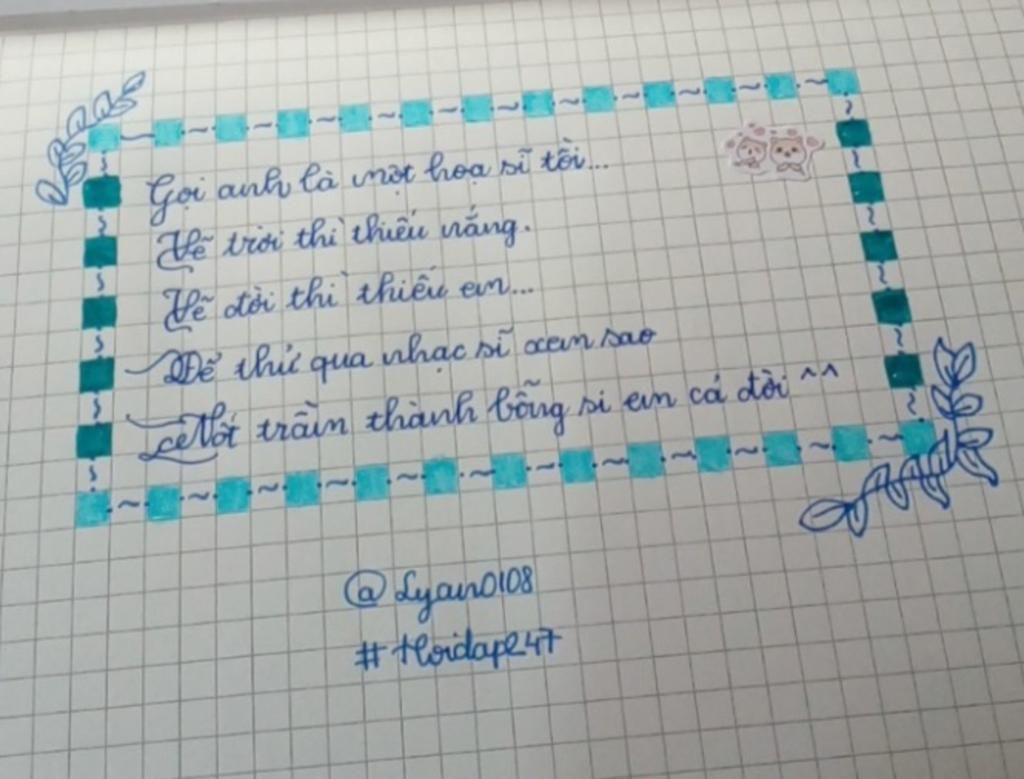 Gọi anh là một hoạ sĩ tồi...
Vẽ trời thì thiếu nắng.
Vẽ đời thì thiếu em...
Để thử qua nhạc sĩ xem sao
Nốt trầm thành bổng si em cả đời ^^
@Lyan0108
#Hoidap247